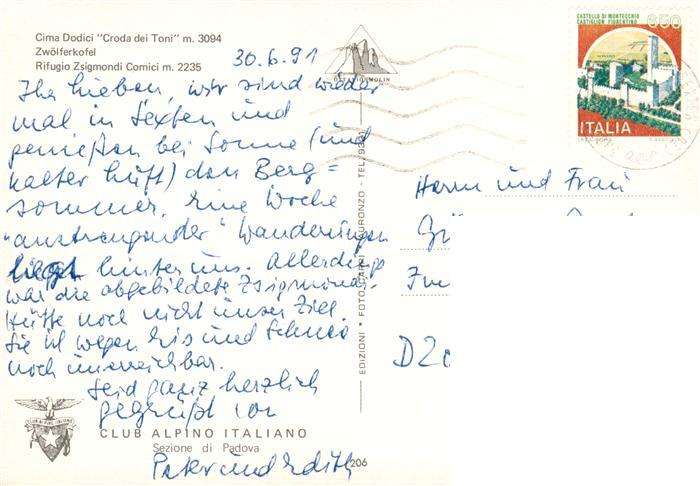 Cima Dodici "Croda dei Toni" m. 3094
Zwölferkofel
Rifugio Zsigmondi Comici m. 2235
30.6.91
Ihr Lieben, wir sind wieder
mal in Sexten und
genießen bei Sonne (und
kalter Luft) den Berg=
sommer. Eine Woche
"anstrengender" Wanderungen
liegt hinter uns. Allerdings
war die abgebildete Zsigmondi-
Hütte noch nicht unser Ziel.
Sie ist wegen Eis und Schnee
noch unerreichbar.
Seid ganz herzlich
gegrüßt von
Peter und Edith
CLUB ALPINO ITALIANO
Sezione di Padova
206
EDIZIONI • FOTO GHEDINA
CASTELLO DI MONTECCHIO
CASTIGLION FIORENTINO
650
ITALIA
Herrn und Frau